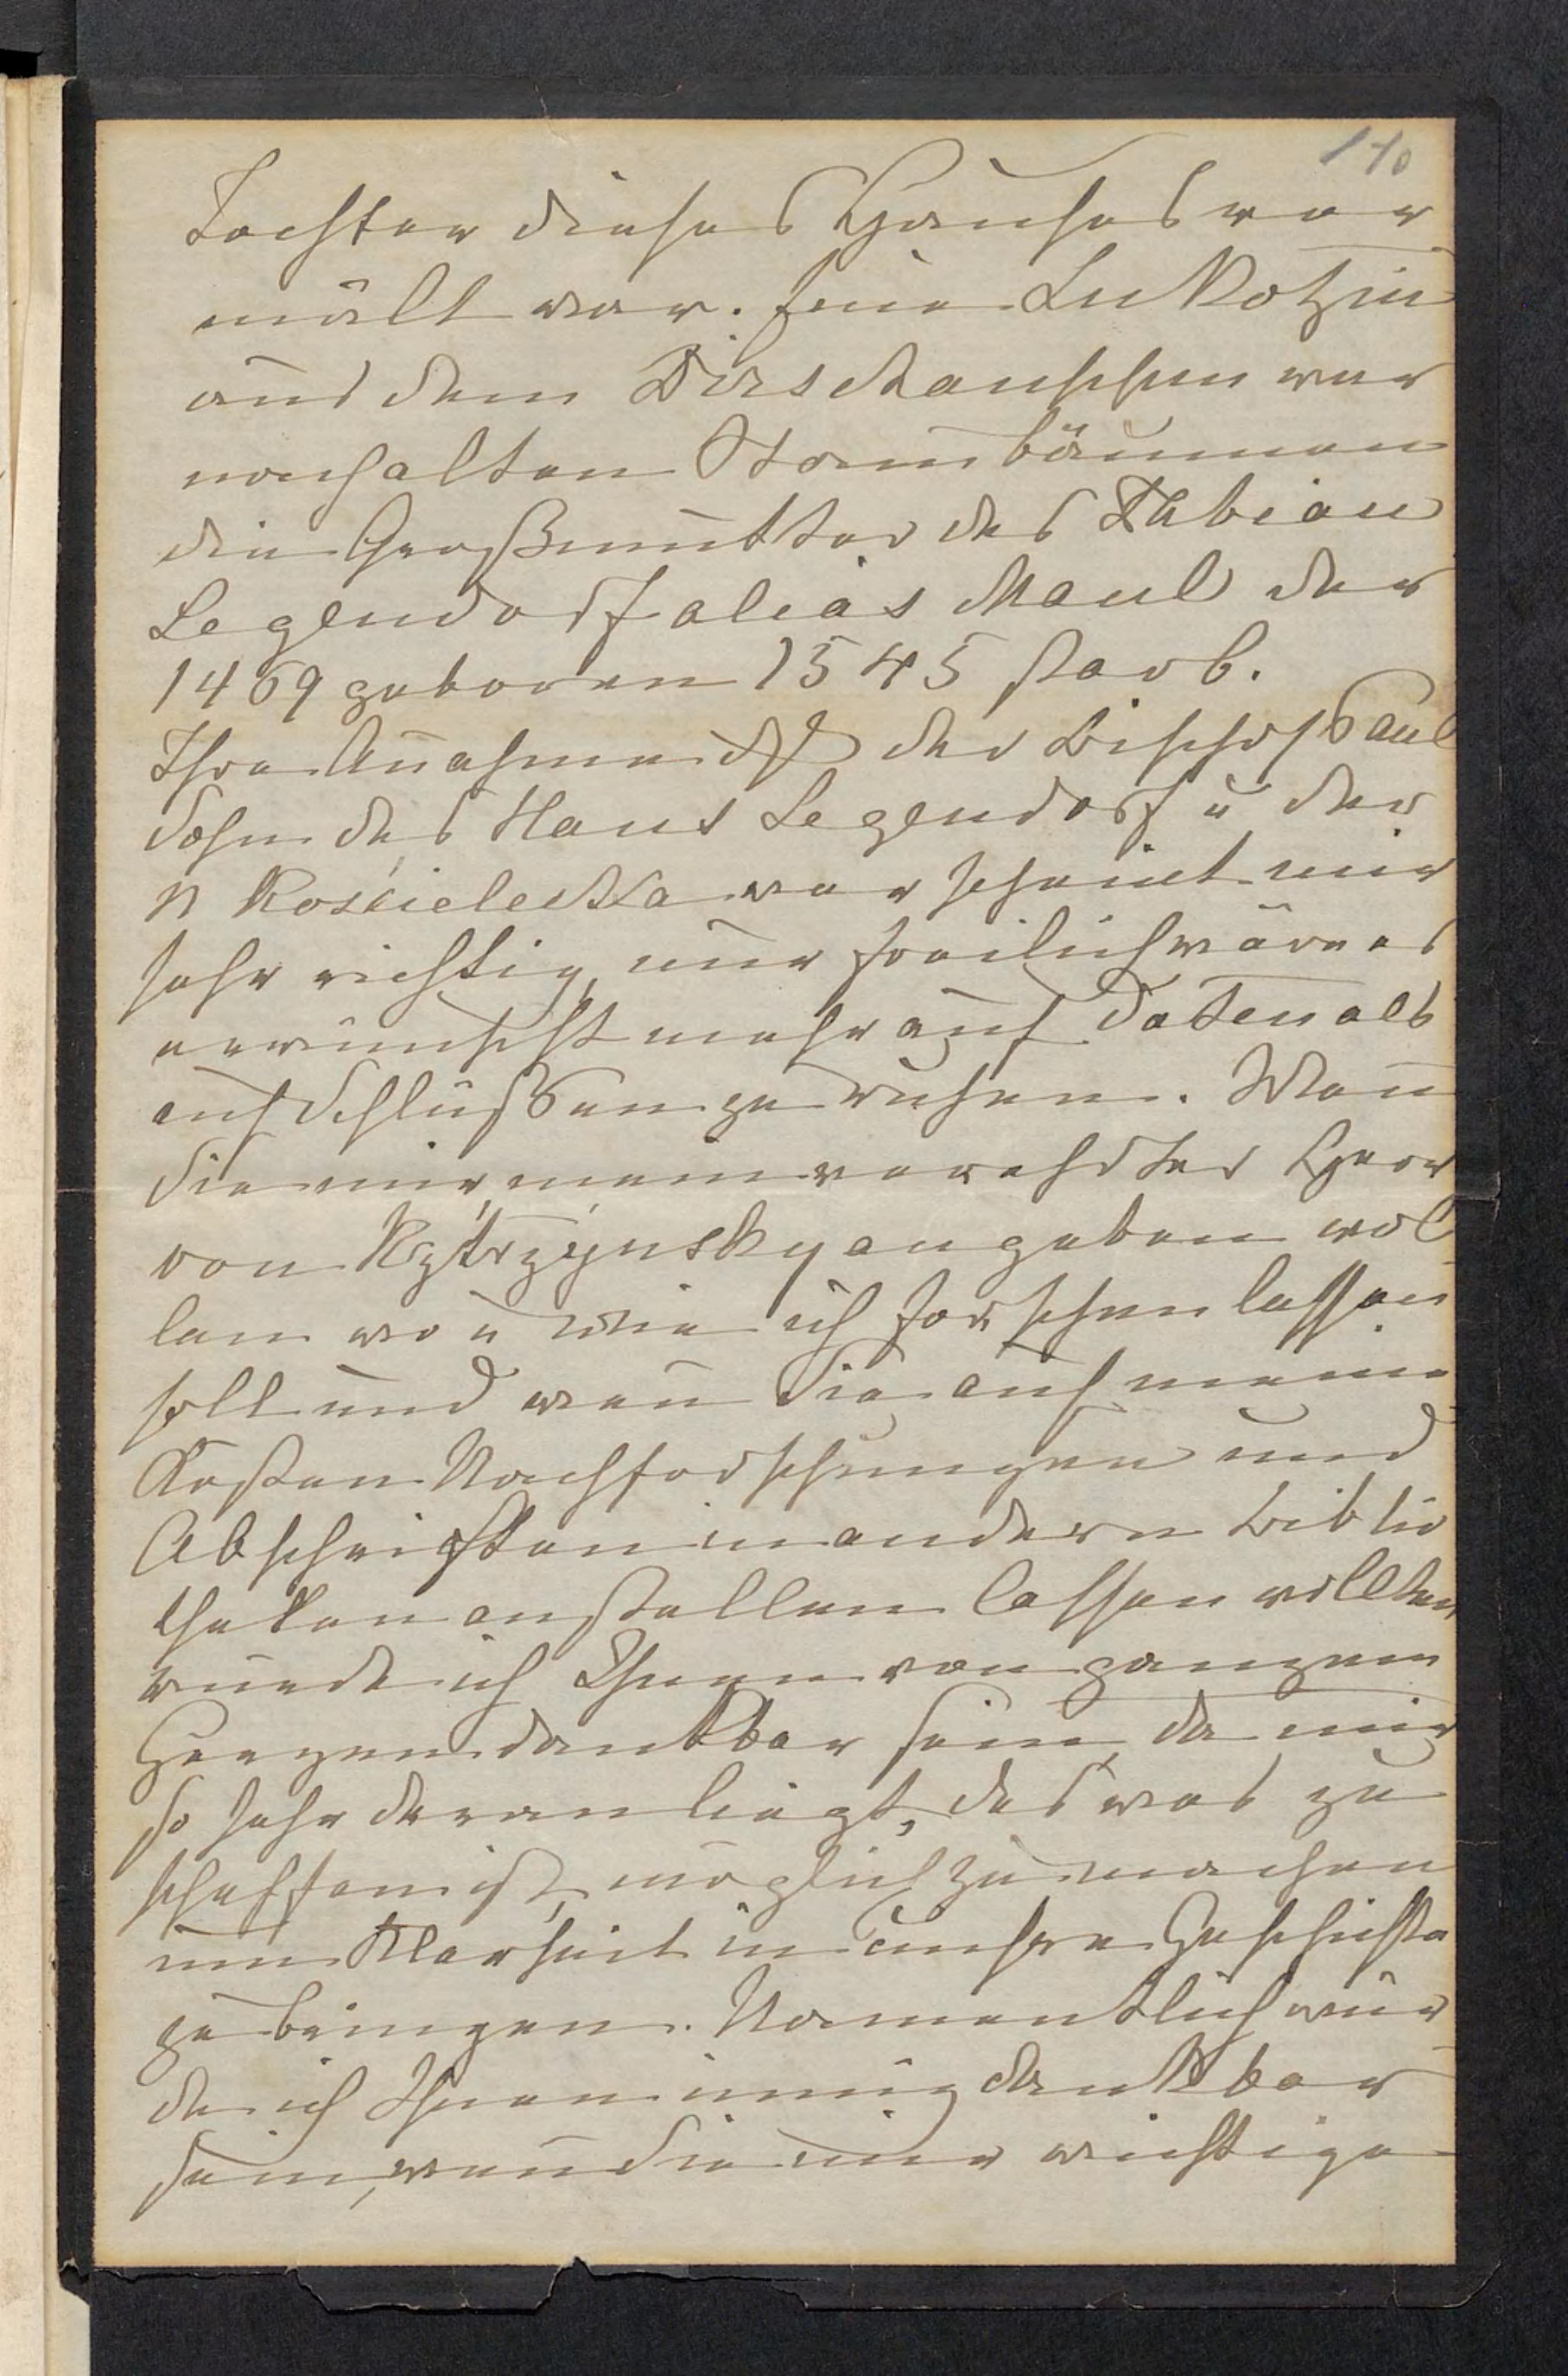 110
Tochter dieses Hauses ver
mält war. Eine Lukotzin
aus dem Dirschauschen war
nach alten Stammbäumen
die Großmutter des Fabian
Legendorf alias Maul der
1469 geboren 1545 starb.
Ihre Annahme daß der Bischof Paul
Sohn des Hans Legendorf u der
N Kościelecka war scheint mir
sehr richtig, nur freilich wäre es
erwünscht mehr auf Daten als
auf Schlüßen zu ruhen. Wenn
Sie mir, mein verehrter Herr
von Kętrzyńsky angeben wol
len wo u wie ich forschen lassen
soll und wenn Sie auf meine
Kosten Nachforschungen und
Abschriften in andern Biblio
theken anstellen lassen wollten
würde ich Ihnen von ganzem
Herzen dankbar sein, da mir
so sehr daran liegt, das was zu
schaffen ist, möglich zu machen
um Klarheit in unsere Geschichte
zu bringen. Namentlich wür
de ich Ihnen innig dankbar
sein, wenn Sie mir wichtige